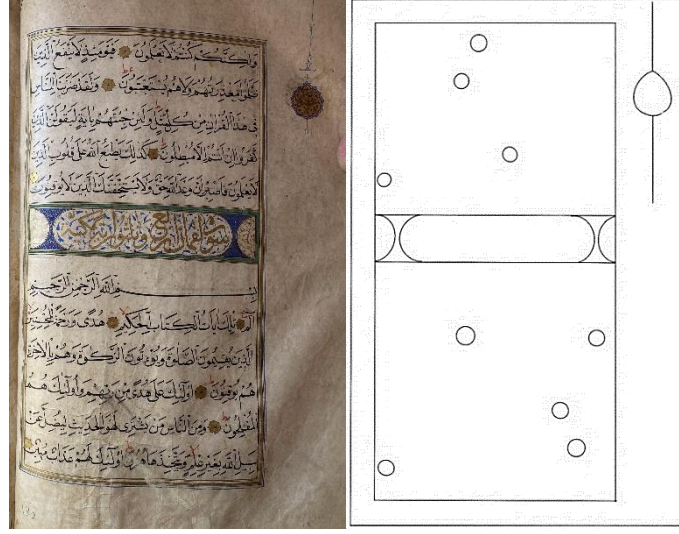 وَلَٰكِنَّكُمْ كُنْتُمْ لَا تَعْلَمُونَ فَيَوْمَئِذٍ لَا يَنْفَعُ الَّذِينَ
ظَلَمُوا مَعْذِرَتُهُمْ وَلَا هُمْ يُسْتَعْتَبُونَ وَلَقَدْ ضَرَبْنَا لِلنَّاسِ
فِي هَذَا الْقُرْآنِ مِنْ كُلِّ مَثَلٍ وَلَئِنْ جِئْتَهُمْ بِآيَةٍ لَيَقُولَنَّ الَّذِينَ
كَفَرُوا إِنْ أَنْتُمْ إِلَّا مُبْطِلُونَ كَذَلِكَ يَطْبَعُ اللَّهُ عَلَى قُلُوبِ الَّذِينَ
لَا يَعْلَمُونَ فَاصْبِرْ إِنَّ وَعْدَ اللَّهِ حَقٌّ وَلَا يَسْتَخِفَّنَّكَ الَّذِينَ لَا يُوقِنُونَ
سورة لقمان اربع وثلثون اية مكية
بِسْمِ اللَّهِ الرَّحْمَنِ الرَّحِيمِ
الم تِلْكَ آيَاتُ الْكِتَابِ الْحَكِيمِ هُدًى وَرَحْمَةً لِلْمُحْسِنِينَ
الَّذِينَ يُقِيمُونَ الصَّلَوةَ وَيُؤْتُونَ الزَّكَوةَ وَهُمْ بِالْآخِرَةِ
هُمْ يُوقِنُونَ أُولَئِكَ عَلَى هُدًى مِنْ رَبِّهِمْ وَأُولَئِكَ هُمُ
الْمُفْلِحُونَ وَمِنَ النَّاسِ مَنْ يَشْتَرِي لَهْوَ الْحَدِيثِ لِيُضِلَّ عَنْ
سَبِيلِ اللَّهِ بِغَيْرِ عِلْمٍ وَيَتَّخِذَهَا هُزُوًا أُولَئِكَ لَهُمْ عَذَابٌ مُهِينٌ